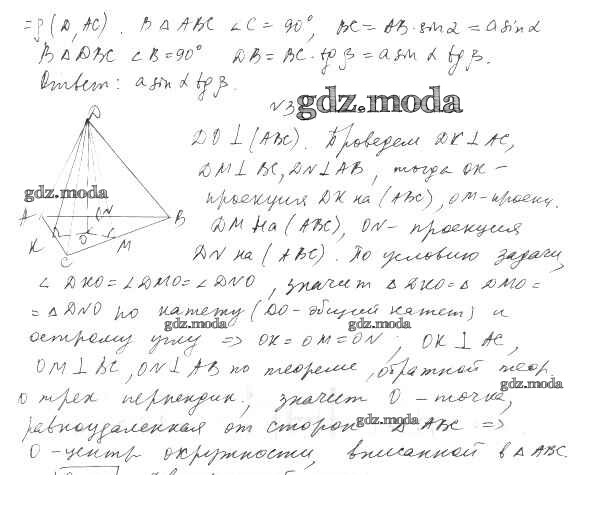 = ρ (D, AC). В △ ABC ∠C = 90°, BC = AB · sin α = a sin α
В △ DBC ∠B = 90° DB = BC · tg β = a sin α tg β.
Ответ: a sin α tg β.
№3 gdz.moda
DO ⊥ (ABC). Проведем DK ⊥ AC,
DM ⊥ BC, DN ⊥ AB, тогда OK –
gdz.moda
проекция DK на (ABC), OM – проекц.
DM на (ABC), ON – проекция
DN на (ABC). По условию задачи,
D
A
N
B
K
O
M
C
∠ DKO = ∠DMO = ∠DNO, значит △ DKO = △ DMO =
= △DNO по катету (DO – общий катет) и
gdz.moda gdz.moda
острому углу => OK = OM = ON; OK ⊥ AC,
OM ⊥ BC, ON ⊥ AB по теореме, обратной теор.
gdz.moda
о трех перпендик., значит O – точка,
равноудаленная от сторон △ ABC =>
gdz.moda
O – центр окружности, вписанной в △ ABC.